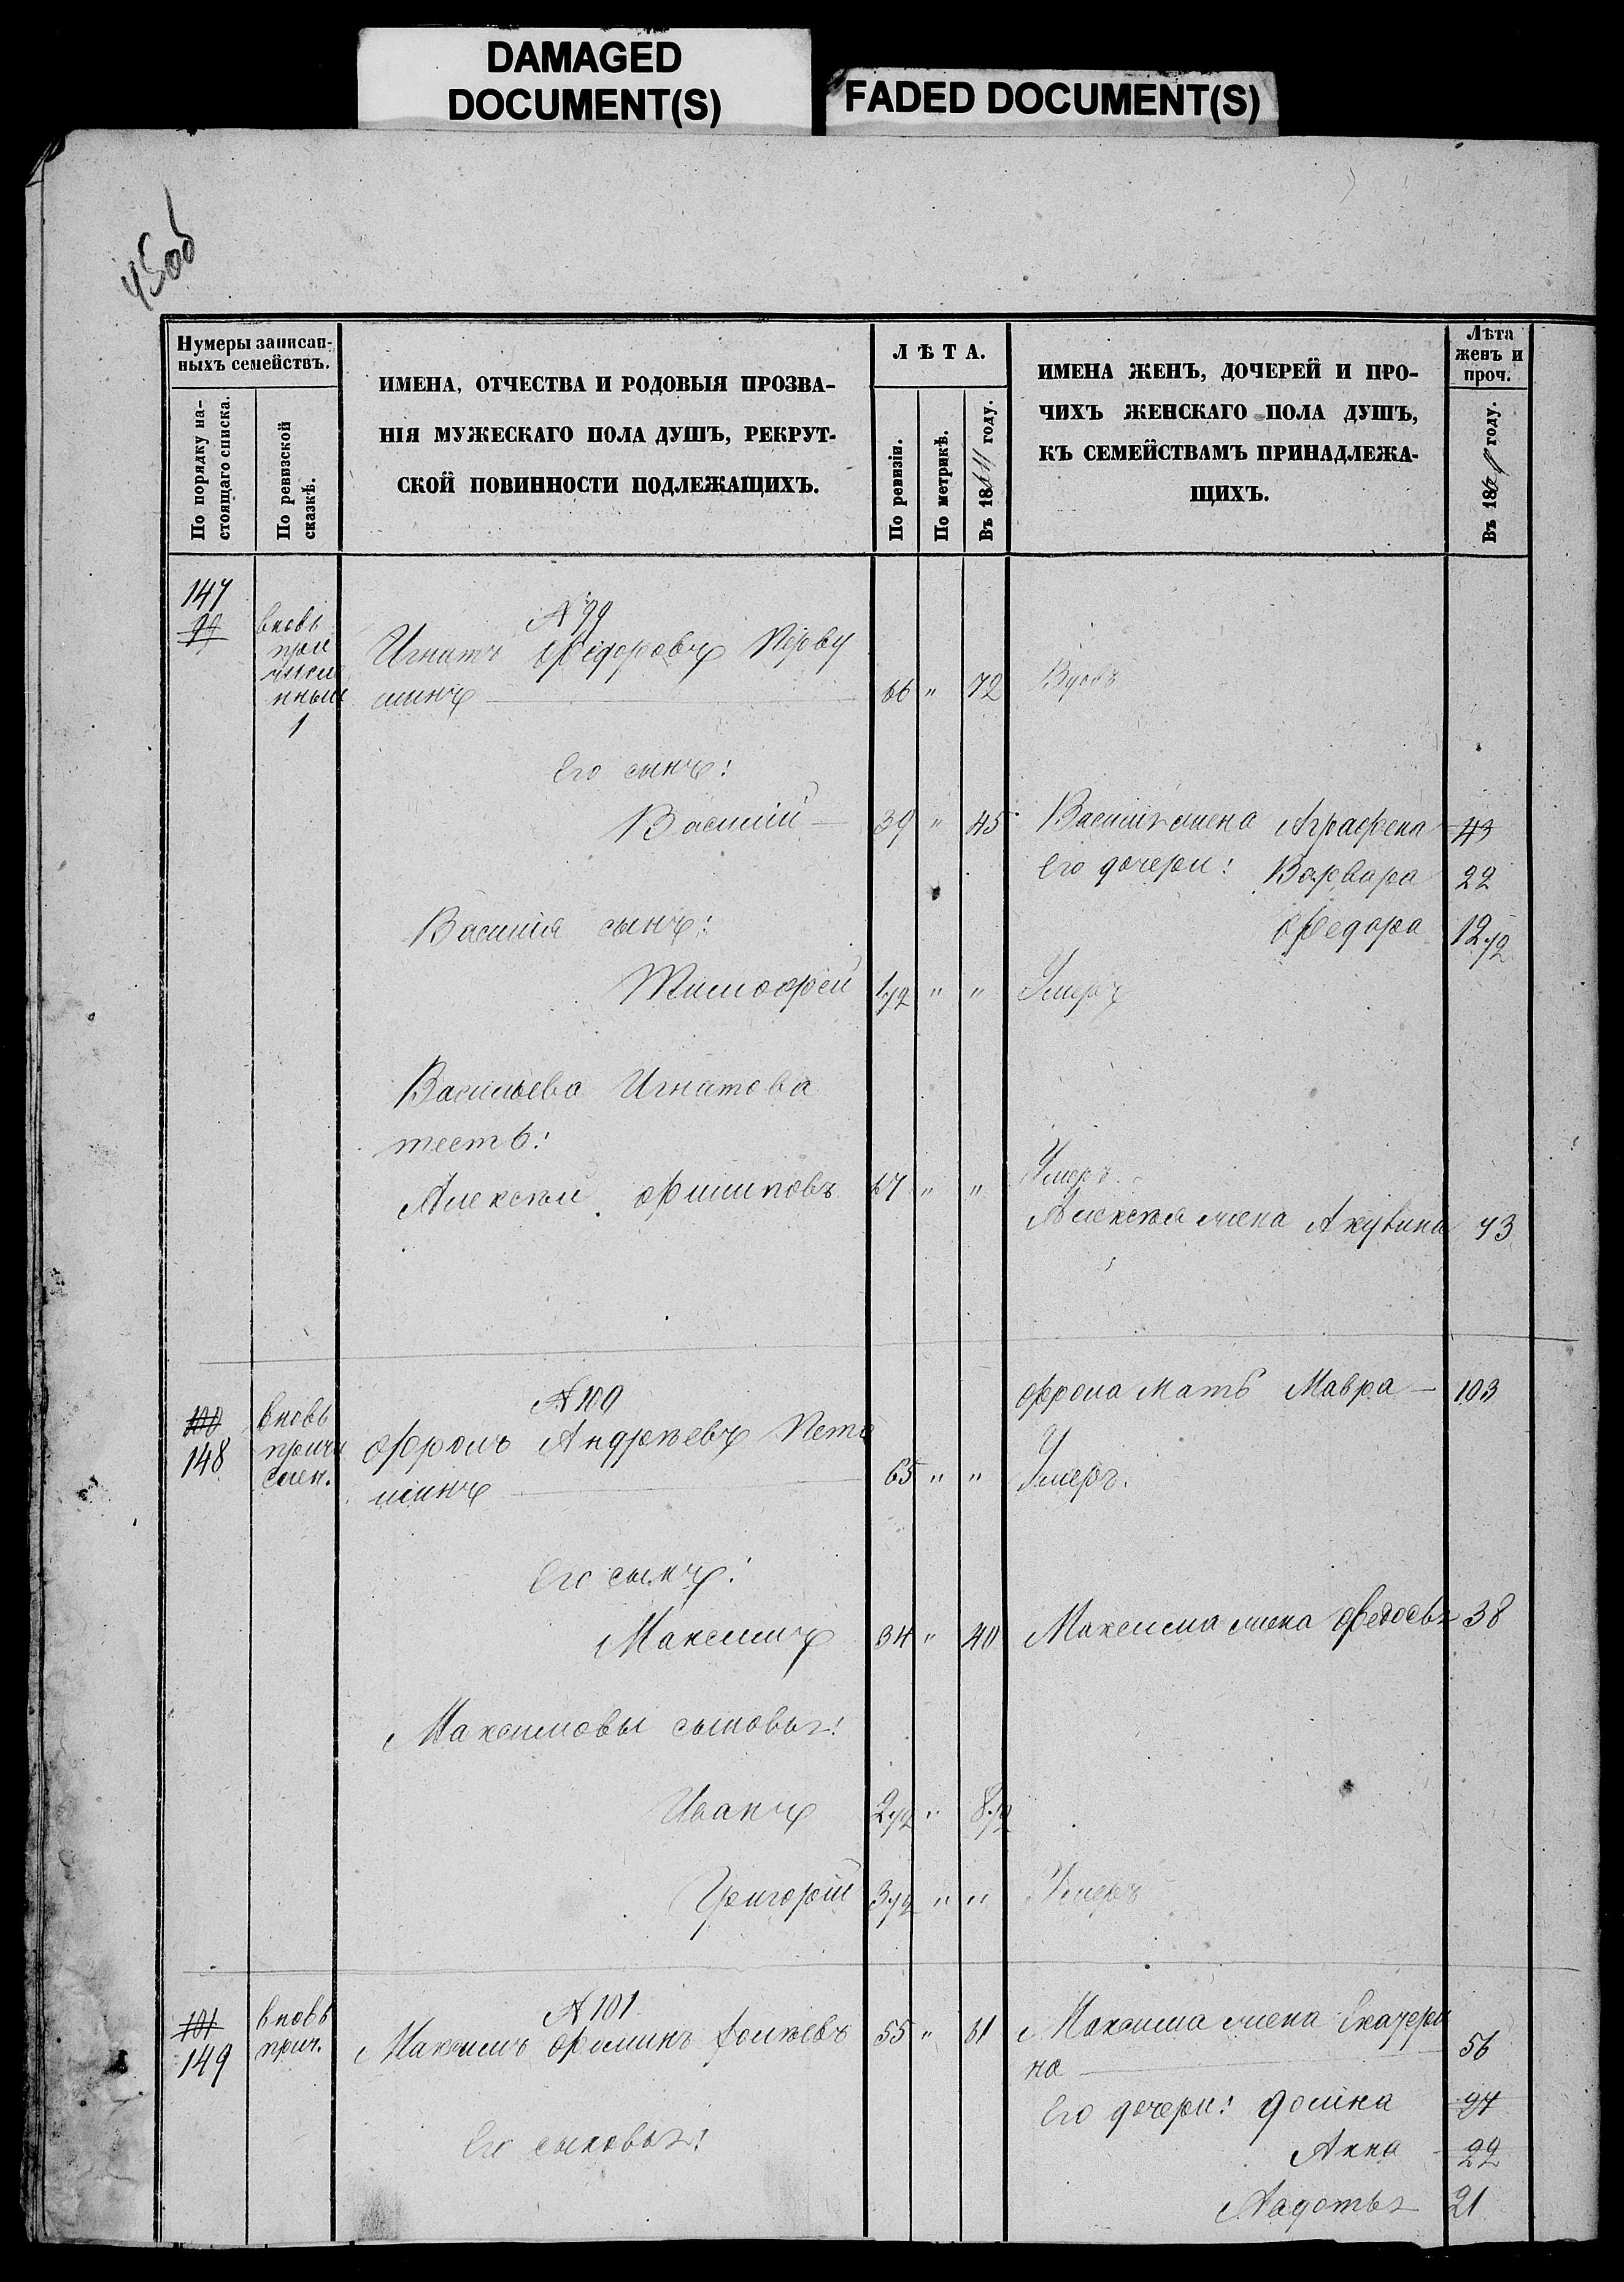 DAMAGED
DOCUMENT(S)
FADED DOCUMENT(S)
45об
Нумеры записан-
ныхъ семействъ.
По порядку на-
стоящаго списка.
По ревизской
сказкѣ.
ИМЕНА, ОТЧЕСТВА И РОДОВЫЯ ПРОЗВА-
НІЯ МУЖЕСКАГО ПОЛА ДУШЪ, РЕКРУТ-
СКОЙ ПОВИННОСТИ ПОДЛЕЖАЩИХЪ.
ЛѢТА.
По ревизіи.
По метрикѣ.
Въ 1864 году.
ИМЕНА ЖЕНЪ, ДОЧЕРЕЙ И ПРО-
ЧИХЪ ЖЕНСКАГО ПОЛА ДУШЪ,
КЪ СЕМЕЙСТВАМЪ ПРИНАДЛЕЖА-
ЩИХЪ.
Лѣта
женъ и
проч.
Въ 1864 году.
147
99
вновь
при
числе
нный
1
№ 99
Игнатъ Ѳедоровъ
шинъ 66 " 72 Вдовъ
Его сынъ:
Василій 39 " 45 Василья жена Аграфена 43
Его дочери: Варвара 22
Василія сынъ: Федора 12 1/2
Тимофей 1/2 " " Умеръ
Васильева Игнатова
тесть:
Алексѣй Филиповъ 67 " " Умеръ
Алексѣя жена Акулина 73
Фрола мать Мавра 103
100
148
вновь
причи
слен.
№ 100
Фролъ Андреевъ Пето
шинъ 65 " " Умеръ.
Его сынъ:
Максимъ 34 " 40 Максима жена Федосья 38
Максимовы сыновья:
Иванъ 2 1/2 " 8 1/2
Григорій 3 1/2 " " Умеръ
101
149
вновь
прич.
№ 101
Максимъ Фоминъ 55 " 61 Максима жена Екатери
на 56
Его дочери: Домна 24
Его сыновья: Анна 22
Авдотья 21